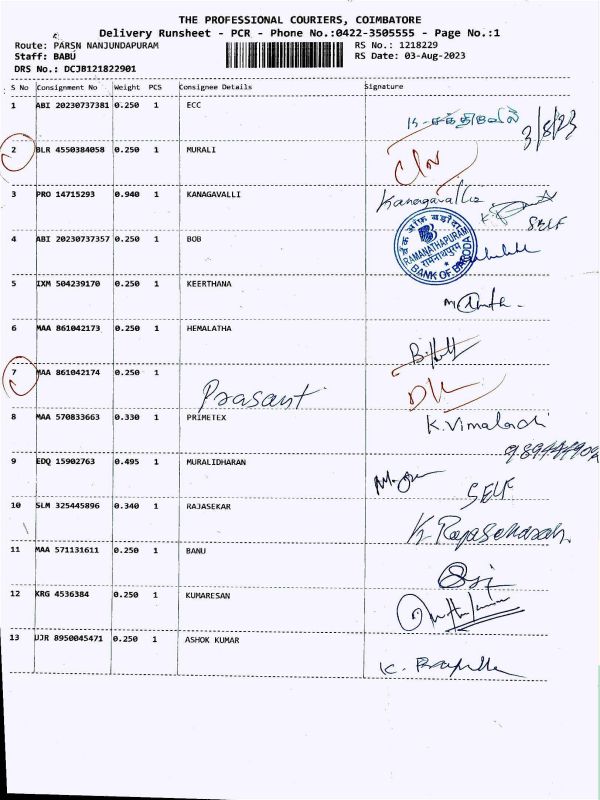 THE PROFESSIONAL COURIERS, COIMBATORE
Delivery Runsheet - PCR - Phone No.:0422-3505555 - Page No.:1
Route: PARSN NANJUNDAPURAM RS No.: 1218229
Staff: BABU RS Date: 03-Aug-2023
DRS No.: DCJB121822901
S No Consignment No Weight PCS Consignee Details Signature
1 ABI 20230737381 0.250 1 ECC
3/8/23
2 BLR 4550384058 0.250 1 MURALI
3 PRO 14715293 0.940 1 KANAGAVALLI Kanagavalli
SELF
4 ABI 20230737357 0.250 1 BOB
बैंक ऑफ़ बड़ौदा
RAMANATHAPURAM
रामनाथपुरम
BANK OF BARODA
5 IXM 504239170 0.250 1 KEERTHANA
6 MAA 861042173 0.250 1 HEMALATHA
7 MAA 861042174 0.250 1
Prasant
8 MAA 570833663 0.330 1 PRIMETEX K. Vimala
9 EDQ 15902763 0.495 1 MURALIDHARAN
SELF
10 SLM 325445896 0.340 1 RAJASEKAR K Rajasekaran
11 MAA 571131611 0.250 1 BANU
12 KRG 4536384 0.250 1 KUMARESAN
13 UJR 8950045471 0.250 1 ASHOK KUMAR